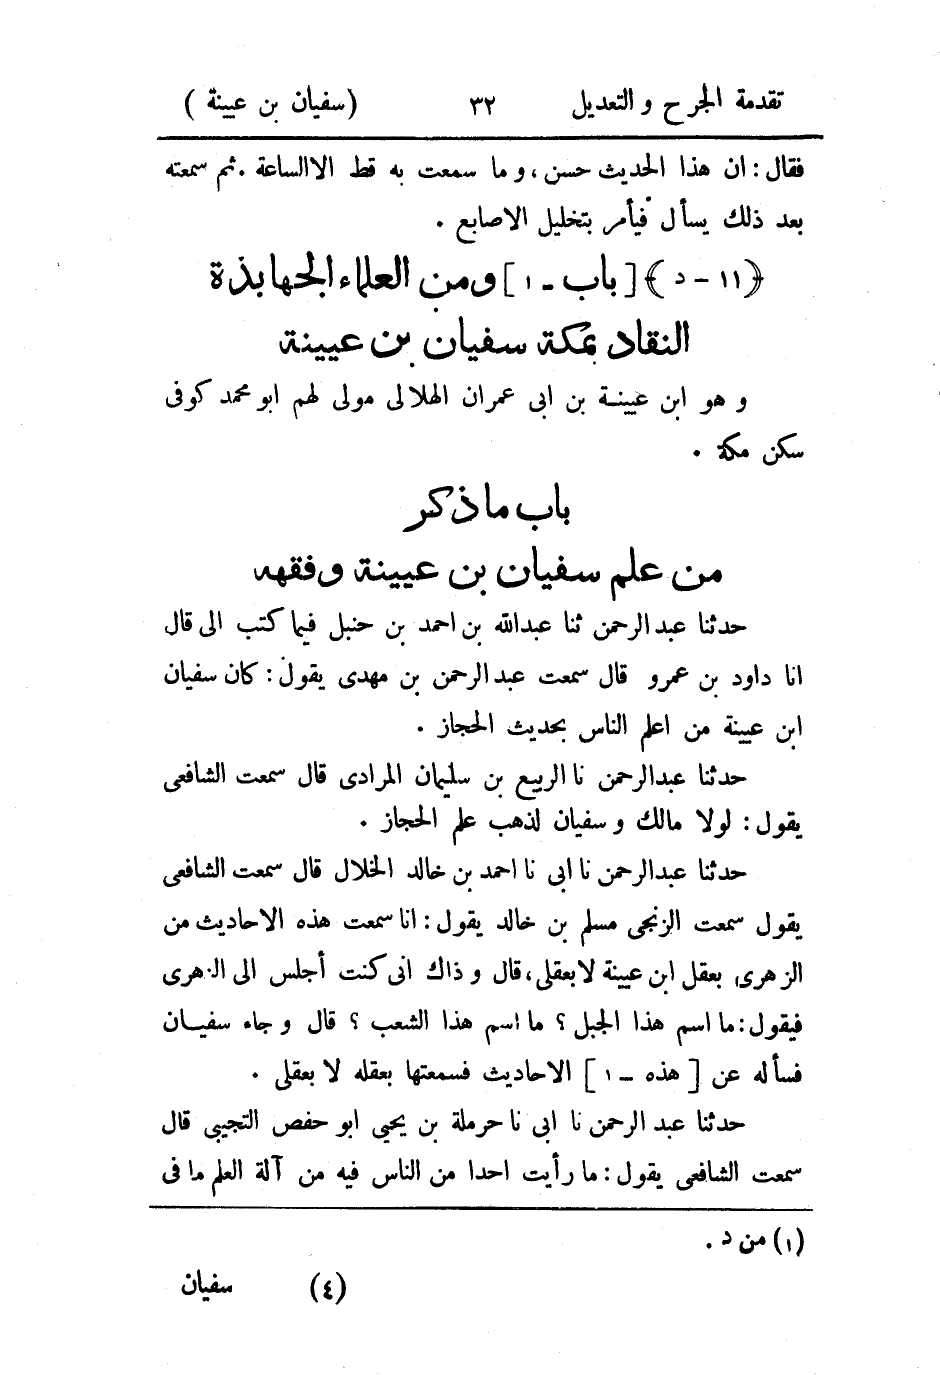 تقدمة الجرح و التعديل ٣٢ (سفيان بن عيينة)
فقال: ان هذا الحديث حسن، و ما سمعت به قط الا الساعة. ثم سمعته
بعد ذلك يسأل فيأمر بتخليل الاصابع .
﴿١١ - د﴾ [باب - ١] ومن العلماء الجهابذة
النقاد بمكة سفيان بن عيينة
و هو ابن عيينة بن ابى عمران الهلالى مولى لهم ابو محمد كوفى
سكن مكة .
باب ما ذكر
من علم سفيان بن عيينة وفقهه
حدثنا عبد الرحمن ثنا عبدالله بن احمد بن حنبل فيما كتب الى قال
انا داود بن عمرو قال سمعت عبد الرحمن بن مهدى يقول: كان سفيان
ابن عيينة من اعلم الناس بحديث الحجاز .
حدثنا عبدالرحمن نا الربيع بن سليمان المرادى قال سمعت الشافعى
يقول: لولا مالك و سفيان لذهب علم الحجاز .
حدثنا عبدالرحمن نا ابى نا احمد بن خالد الخلال قال سمعت الشافعى
يقول سمعت الزنجى مسلم بن خالد يقول: انا سمعت هذه الاحاديث من
الزهرى بعقل ابن عيينة لا بعقلى، قال و ذاك انى كنت أجلس الى الزهرى
فيقول: ما اسم هذا الجبل ؟ ما اسم هذا الشعب ؟ قال و جاء سفيان
فسأله عن [هذه - ١] الاحاديث فسمعتها بعقله لا بعقلى .
حدثنا عبد الرحمن نا ابى نا حرملة بن يحيى ابو حفص التجيبى قال
سمعت الشافعى يقول: ما رأيت احدا من الناس فيه من آلة العلم ما فى
(١) من د .
(٤) سفيان